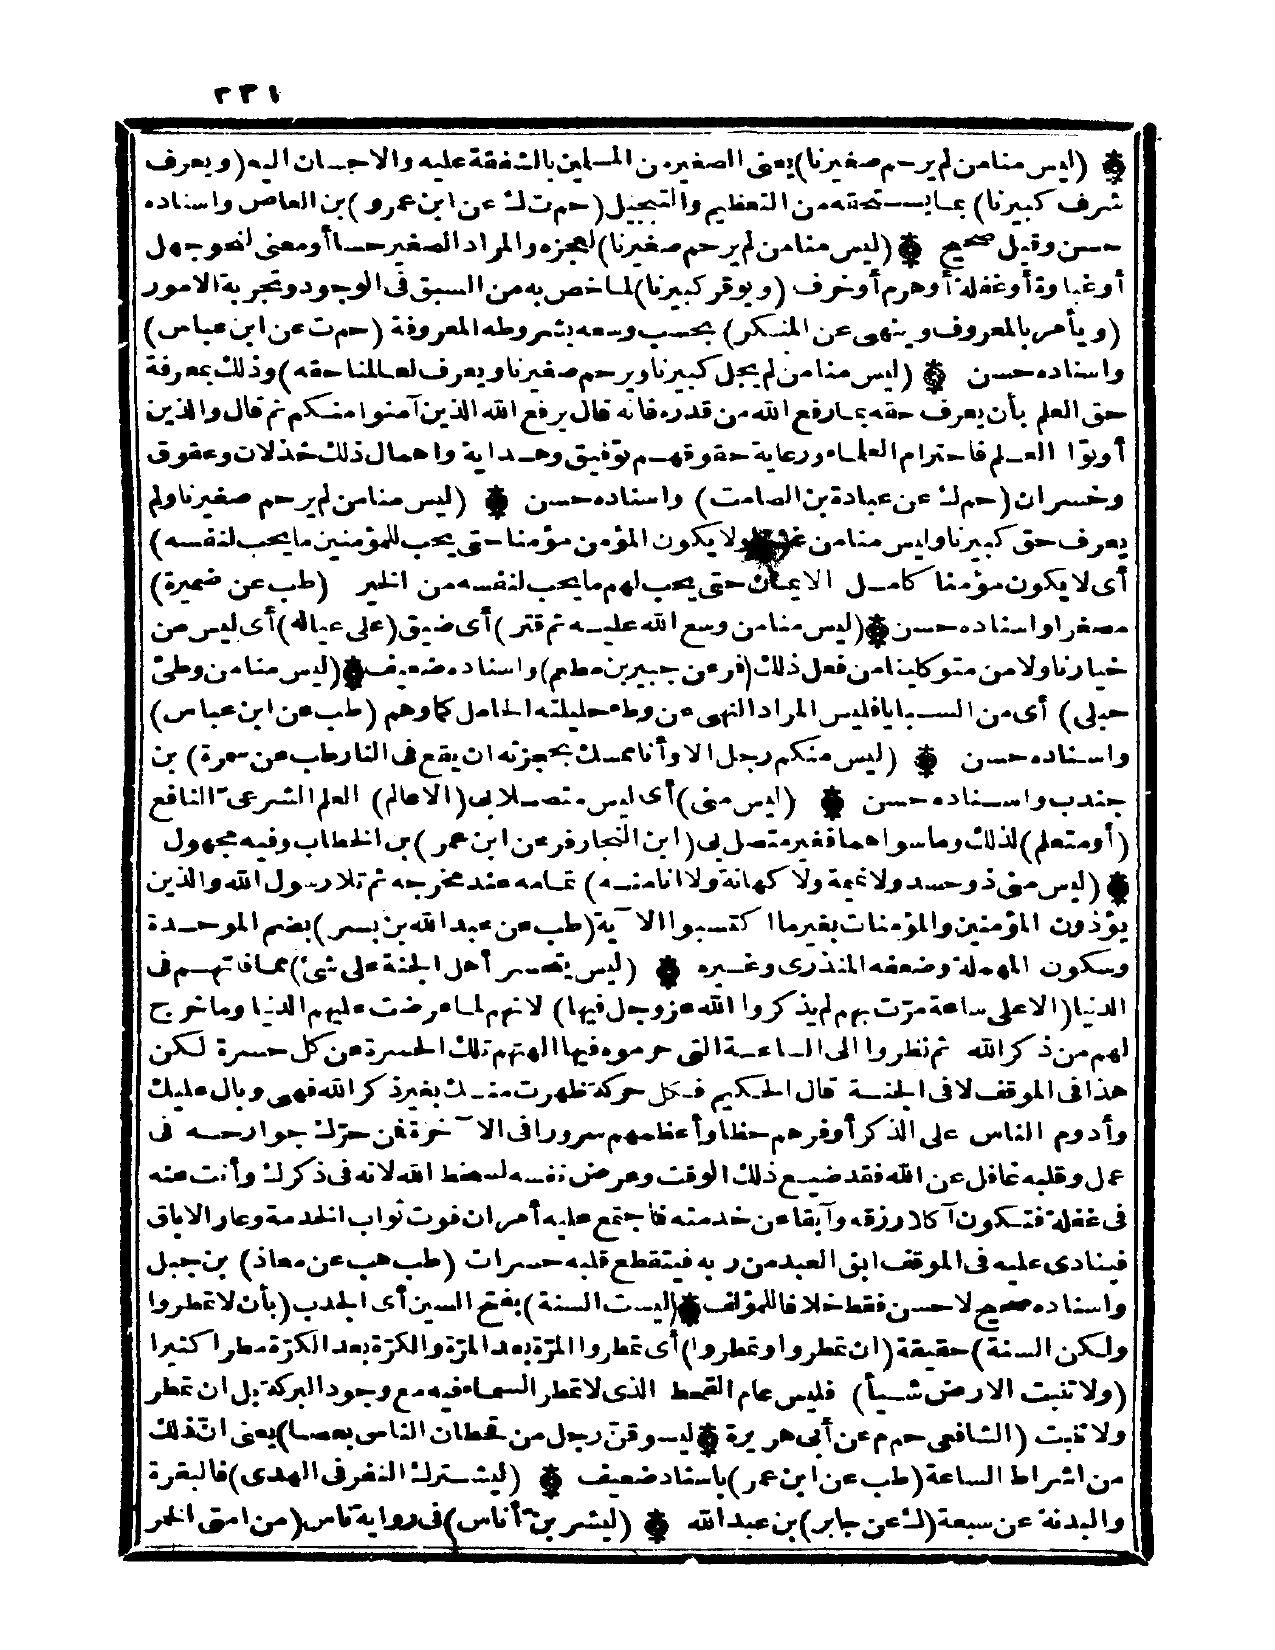 ٣٣١
(ليس منا من لم يرحم صغيرنا) يعنى الصغير من المسلمين بالشفقة عليه والاحسان اليه (ويعرف
شرف كبيرنا) بما يستحقه من التعظيم والتبجيل (حم ت ك عن ابن عمرو) بن العاص واسناده
حسن وقيل صحيح (ليس منا من لم يرحم صغيرنا) لعجزه والمراد الصغير حسا أو معنى لنحو جهل
أو غباوة أو غفلة أو هرم أو خرف (ويوقر كبيرنا) لما خص به من السبق فى الوجود وتجربة الامور
(ويأمر بالمعروف وينهى عن المنكر) بحسب وسعه بشروطه المعروفة (حم ت عن ابن عباس)
واسناده حسن (ليس منا من لم يجل كبيرنا ويرحم صغيرنا ويعرف لعالمنا حقه) وذلك بمعرفة
حق العلم بأن يعرف حقه بما رفع الله من قدره فانه قال يرفع الله الذين آمنوا منكم ثم قال والذين
أوتوا العلم فاحترام العلماء ورعاية حقوقهم توفيق وهداية واهمال ذلك خذلان وعقوق
وخسران (حم ك عن عبادة بن الصامت) واسناده حسن (ليس منا من لم يرحم صغيرنا ولم
يعرف حق كبيرنا وليس منا من غشنا ولا يكون المؤمن مؤمنا حتى يحب للمؤمنين ما يحب لنفسه)
أى لا يكون مؤمنا كامل الايمان حتى يحب لهم ما يحب لنفسه من الخير (طب عن ضميرة)
مصغرا واسناده حسن (ليس منا من وسع الله عليه ثم قتر) أى ضيق (على عياله) أى ليس من
خيارنا ولا من متوكلينا من فعل ذلك (فر عن جبير بن مطعم) واسناده ضعيف (ليس منا من وطئ
حبلى) أى من السبايا فليس المراد النهى عن وطء حليلته الحامل كما وهم (طب عن ابن عباس)
واسناده حسن (ليس منكم رجل الا وأنا ممسك بحجزته ان يقع فى النار طب عن سمرة) بن
جندب واسناده حسن (ليس منى) أى ليس متصلا بى (الا عالم) العلم الشرعى النافع
(أو متعلم) لذلك وما سواهما فغير متصل بى (ابن النجار فر عن ابن عمر) بن الخطاب وفيه مجهول
(ليس منى ذو حسد ولا نميمة ولا كهانة ولا انا منه) تمامه عند مخرجه ثم تلا رسول الله والذين
يؤذون المؤمنين والمؤمنات بغير ما اكتسبوا الآية (طب عن عبد الله بن بسر) بضم الموحدة
وسكون المهملة وضعفه المنذرى وغيره (ليس يتحسر أهل الجنة على شئ) مما فاتهم فى
الدنيا (الا على ساعة مرّت بهم لم يذكروا الله عز وجل فيها) لانهم لما عرضت عليهم الدنيا وما خرج
لهم من ذكر الله ثم نظروا الى الساعة التى حرموه فيها الهتهم تلك الحسرة عن كل حسرة لكن
هذا فى الموقف لا فى الجنة قال الحكيم فكل حركة ظهرت منك بغير ذكر الله فهى وبال عليك
وأدوم الناس على الذكر أوفرهم حظا وأعظمهم سرورا فى الآخرة فمن حرّك جوارحه فى
عمل وقلبه غافل عن الله فقد ضيع ذلك الوقت وعرض نفسه لسخط الله لانه فى ذكرك وأنت عنه
فى غفلة فتكون آكلا رزقه وآبقا عن خدمته فاجتمع عليه أمران فوت ثواب الخدمة وعار الاباق
فينادى عليه فى الموقف ابق العبد من ربه فيتقطع قلبه حسرات (طب هب عن معاذ) بن جبل
واسناده صحيح لا حسن فقط خلافا للمؤلف (ليست السنة) بفتح السين أى الجدب (بأن لا تمطروا
ولكن السنة) حقيقة (ان تمطروا وتمطروا) أى تمطروا المرّة بعد المرّة والكرّة بعد الكرّة مطرا كثيرا
(ولا تنبت الارض شيأ) فليس عام القحط الذى لا تمطر السماء فيه مع وجود البركة بل ان تمطر
ولا تنبت (الشافعى حم م عن أبى هريرة ليسوقنّ رجل من قحطان الناس بعصا) يعنى انّ ذلك
من اشراط الساعة (طب عن ابن عمر) باسناد ضعيف (ليشترك النفر فى الهدى) فالبقرة
والبدنة عن سبعة (ك عن جابر) بن عبد الله (ليشربنّ أناس) فى رواية ناس (من امتى الخمر